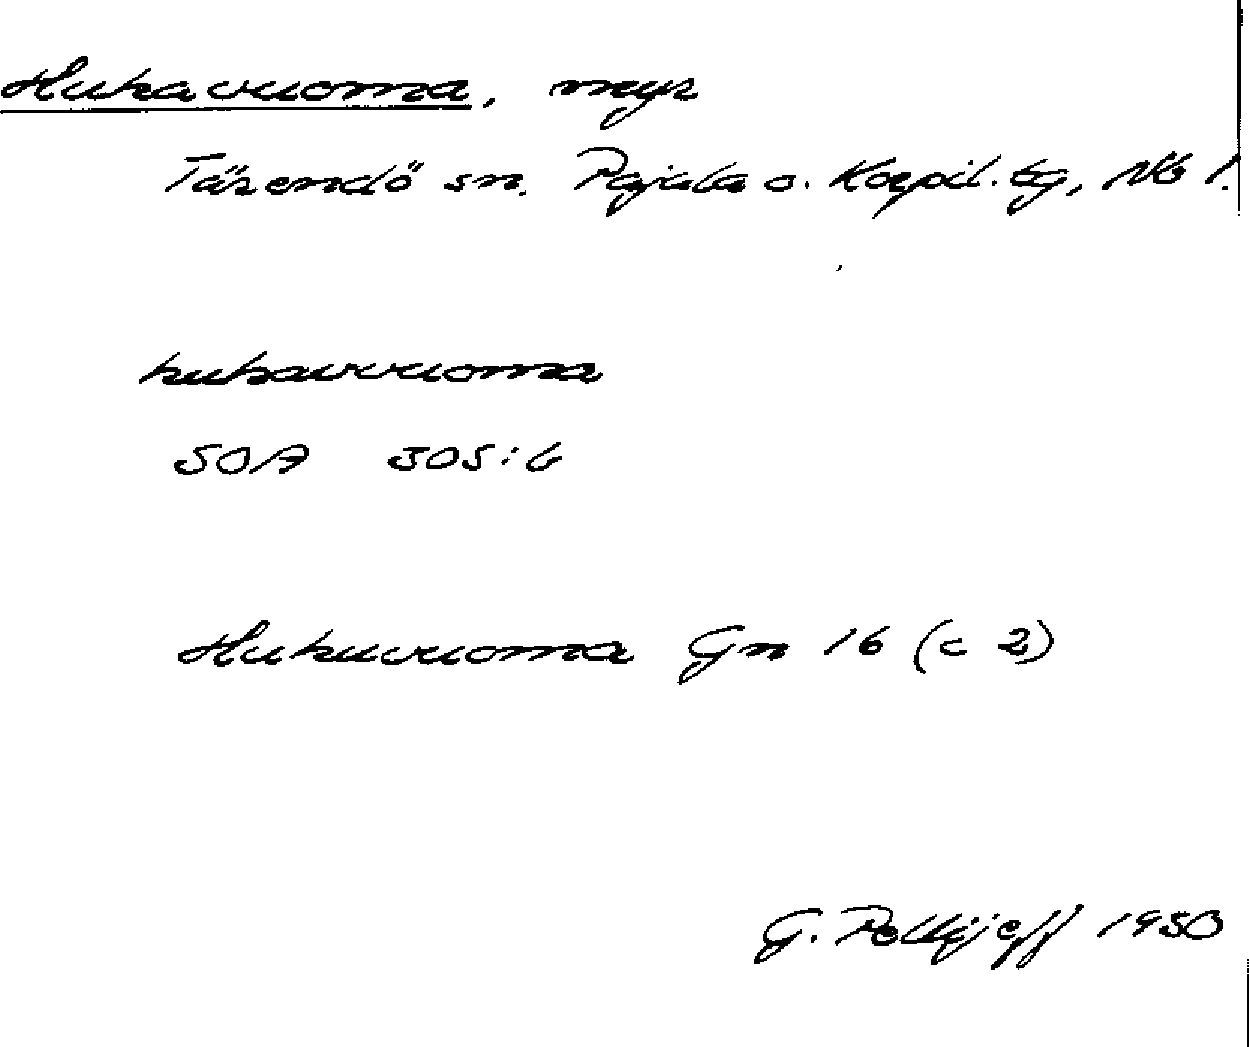 Hukavuoma, myr
Tärendö sn. Pajala o. Korpil. tg, Nb l.
hukavvuoma
SOA 305:6
Hukuvuoma Gn 16 (c 2)
G. Pellijeff 1950